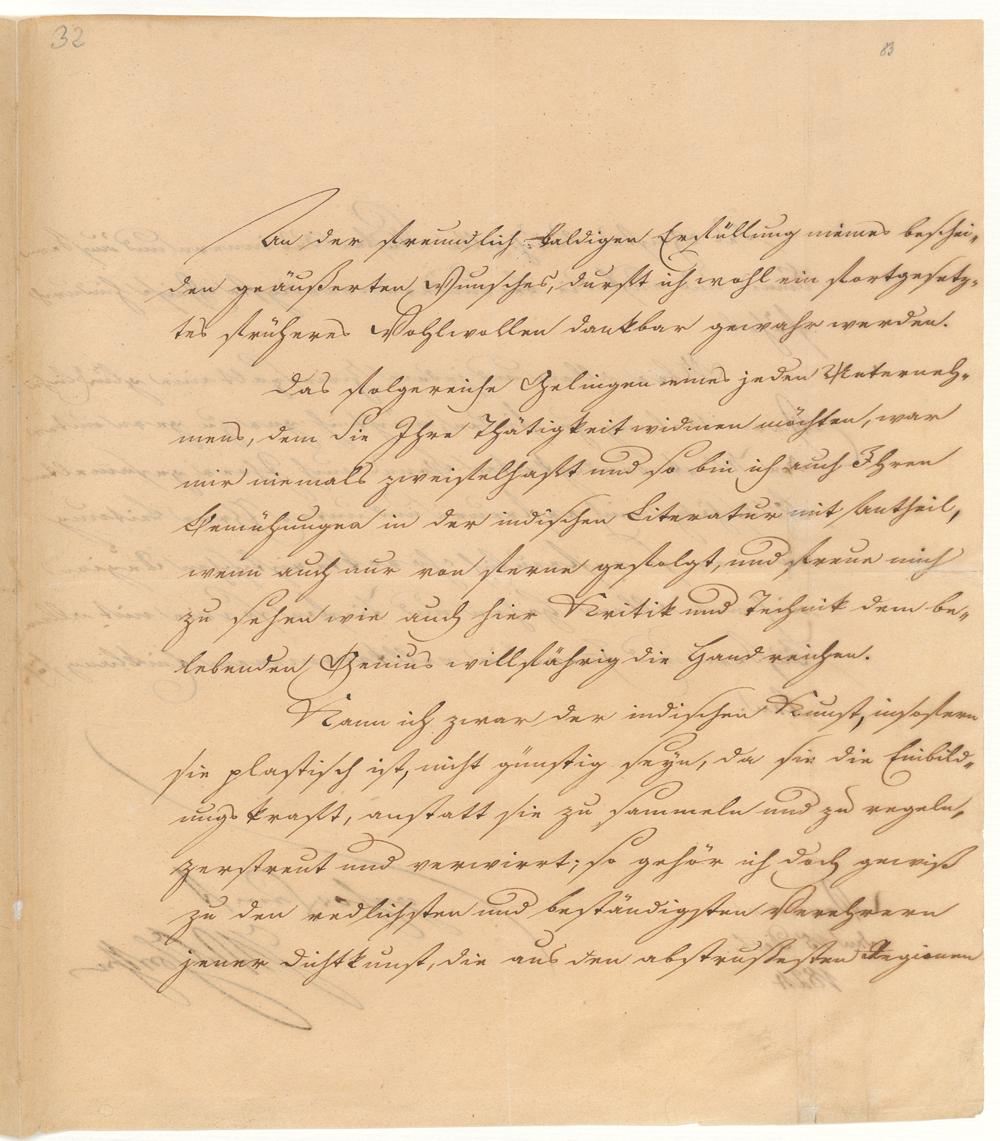 32
83
An der freundlich-baldigen Erfüllung meines beschei-
den geäußerten Wunsches, durft ich wohl ein fortgesetz-
tes früheres Wohlwollen dankbar gewahr werden.
Das folgereiche Gelingen eines jeden Unterneh-
mens, dem Sie Ihre Thätigkeit widmen möchten, war
mir niemals zweifelhaft und so bin ich auch Ihren
Bemühungen in der indischen Literatur mit Antheil,
wenn auch nur von ferne gefolgt, und freue mich
zu sehen wie auch hier Kritik und Technik dem be-
lebenden Genius willfährig die Hand reichen.
Kann ich zwar der indischen Kunst, insofern
sie plastisch ist, nicht günstig seyn, da sie die Einbild-
ungskraft, anstatt sie zu sammeln und zu regeln,
zerstreut und verwirrt; so gehör ich doch gewiß
zu den redlichsten und beständigsten Verehrern
jener Dichtkunst, die aus den abstrusesten Regionen